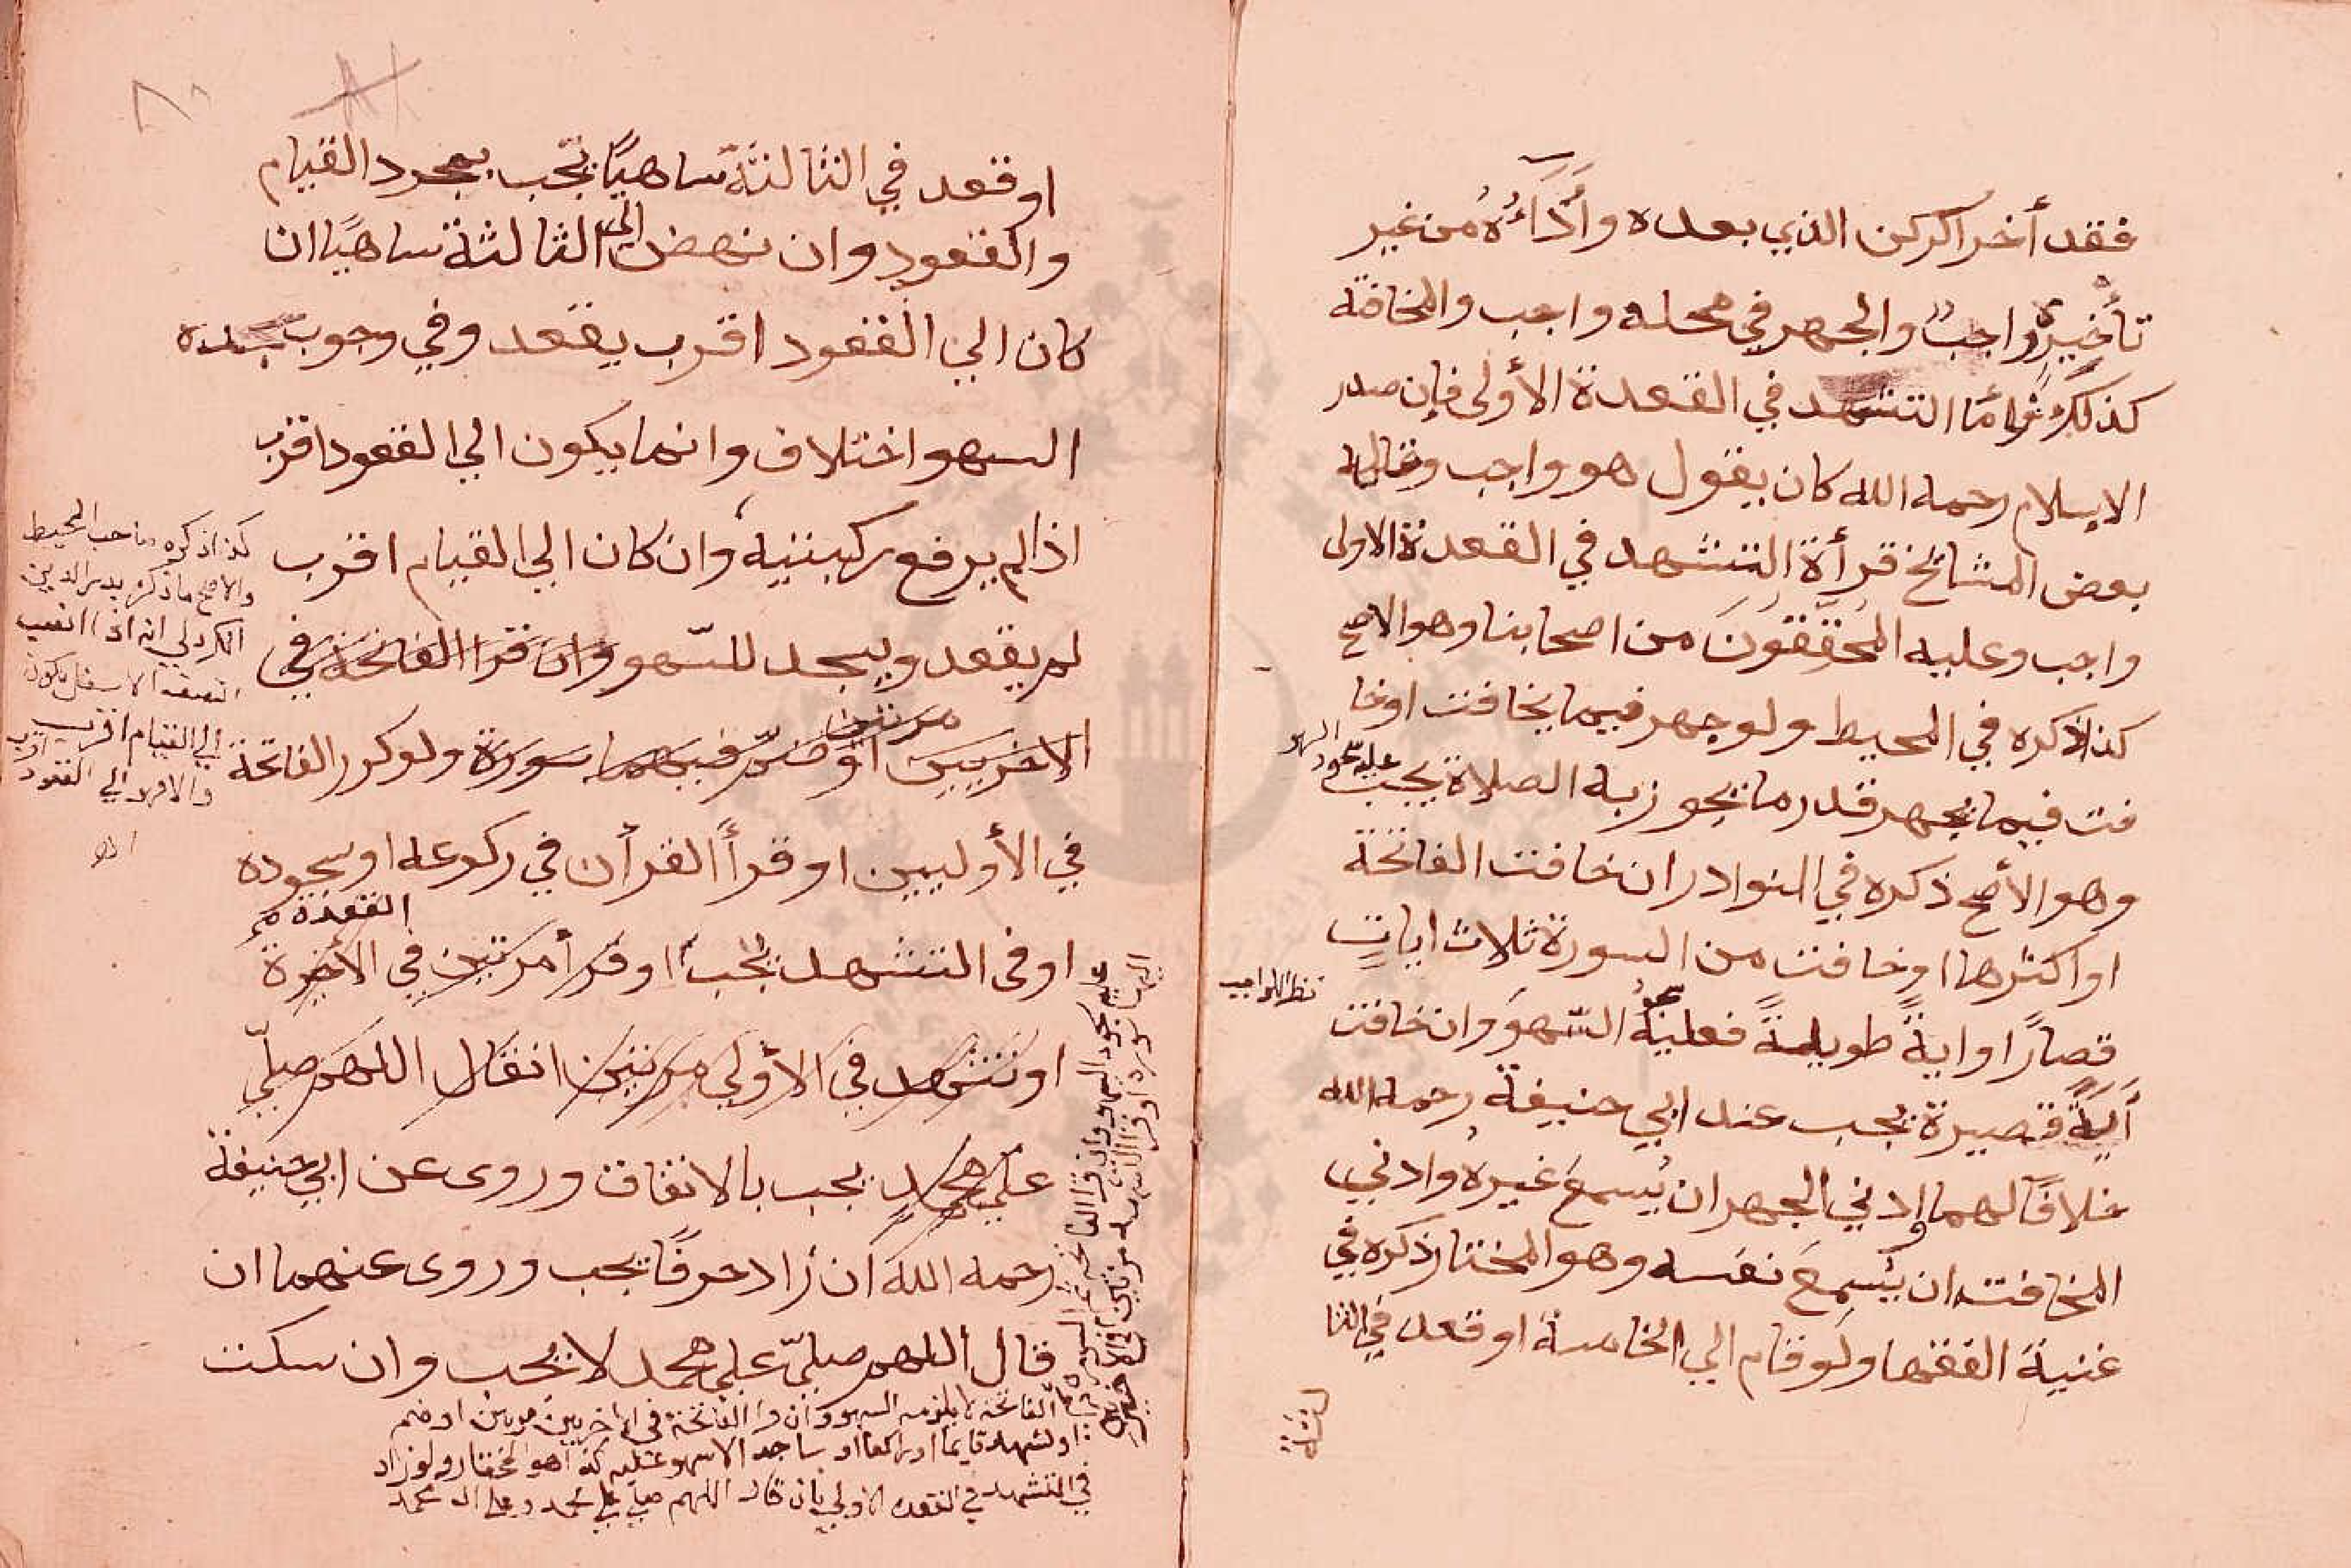 فقد أخر الركن الذي بعده وأداءُهُ من غير
تأخيرٍ واجبٌ والجهر في محله واجب والمخافتة
كذلك وأما التشهد في القعدة الأولى فإن صدر
الإسلام رحمه الله كان يقول هو واجب وقال
بعض المشائخ قرأة التشهد في القعدة الاولى
واجب وعليه المُحَقِّقُونَ من اصحابنا وهو الاصح
كذا ذكره في المحيط ولو جهر فيما يخافت او خا
فت فيما يجهر قدر ما يجوز به الصلاة يجب
عليه سجود السهو
وهو الأصح ذكره في النوادر ان خافت الفاتحة
او اكثرها او خافت من السورة ثلاث ايات
قصارًا او ايةً طويلةً فعليه السّهو وان خافت
آيةً قصيرة يجب عند ابي حنيفة رحمه الله
خلافًا لهما وادني الجهر ان يُسمعَ غيرهُ وادني
المخافتة ان يُسمِعَ نفسه وهو المختار ذكره في
غنية الفقها ولو قام الي الخامسة او قعد في الثا
لثة
او قعد في الثالثة ساهيًا يجب بمجرد القيام
والقعود وان نهض الى الثالثة ساهيًا ان
كان الي القعود اقرب يقعد وفي وجوب سجدة
السهو اختلاف وانما يكون الي القعود اقرب
اذا لم يرفع ركبتيه وان كان الي القيام اقرب
لم يقعد ويسجد للسّهو وان قرا الفاتحة في
الاخريين مرتين او ضمّ فيهما سورة ولو كرر الفاتحة
في الأوليين او قرأ القرأن في ركوعه او سجوده
او في التشهد يجب او قرأ مرتين في القعدة الأخيرة
او تشهد في الأولي مرتين او قال اللهم صلّي
علي محمد يجب بالاتفاق وروى عن ابي حنيفة
رحمه الله ان زاد حرفًا يجب وروى عنهما ان
قال اللهم صليّ علي محمد لا يجب وان سكت
كذا ذكره صاحب المحيط
والاصح ما ذكره بدر الدين
الكردلي انه اذا انتصب
النصف الاسفل يكون
الي القيام اقرب
والا فهو الي القعود اقرب
الفاتحة لا يلزمه السهو وان قرا الفاتحة في الاخريين مرتين او ضم
او تشهد قايما او راكعا او ساجدا لا سهو عليه كذا هو المختار ولو زاد
في التشهد في القعدة الاولي بان قال اللهم صلي علي محمد وعلي ال محمد